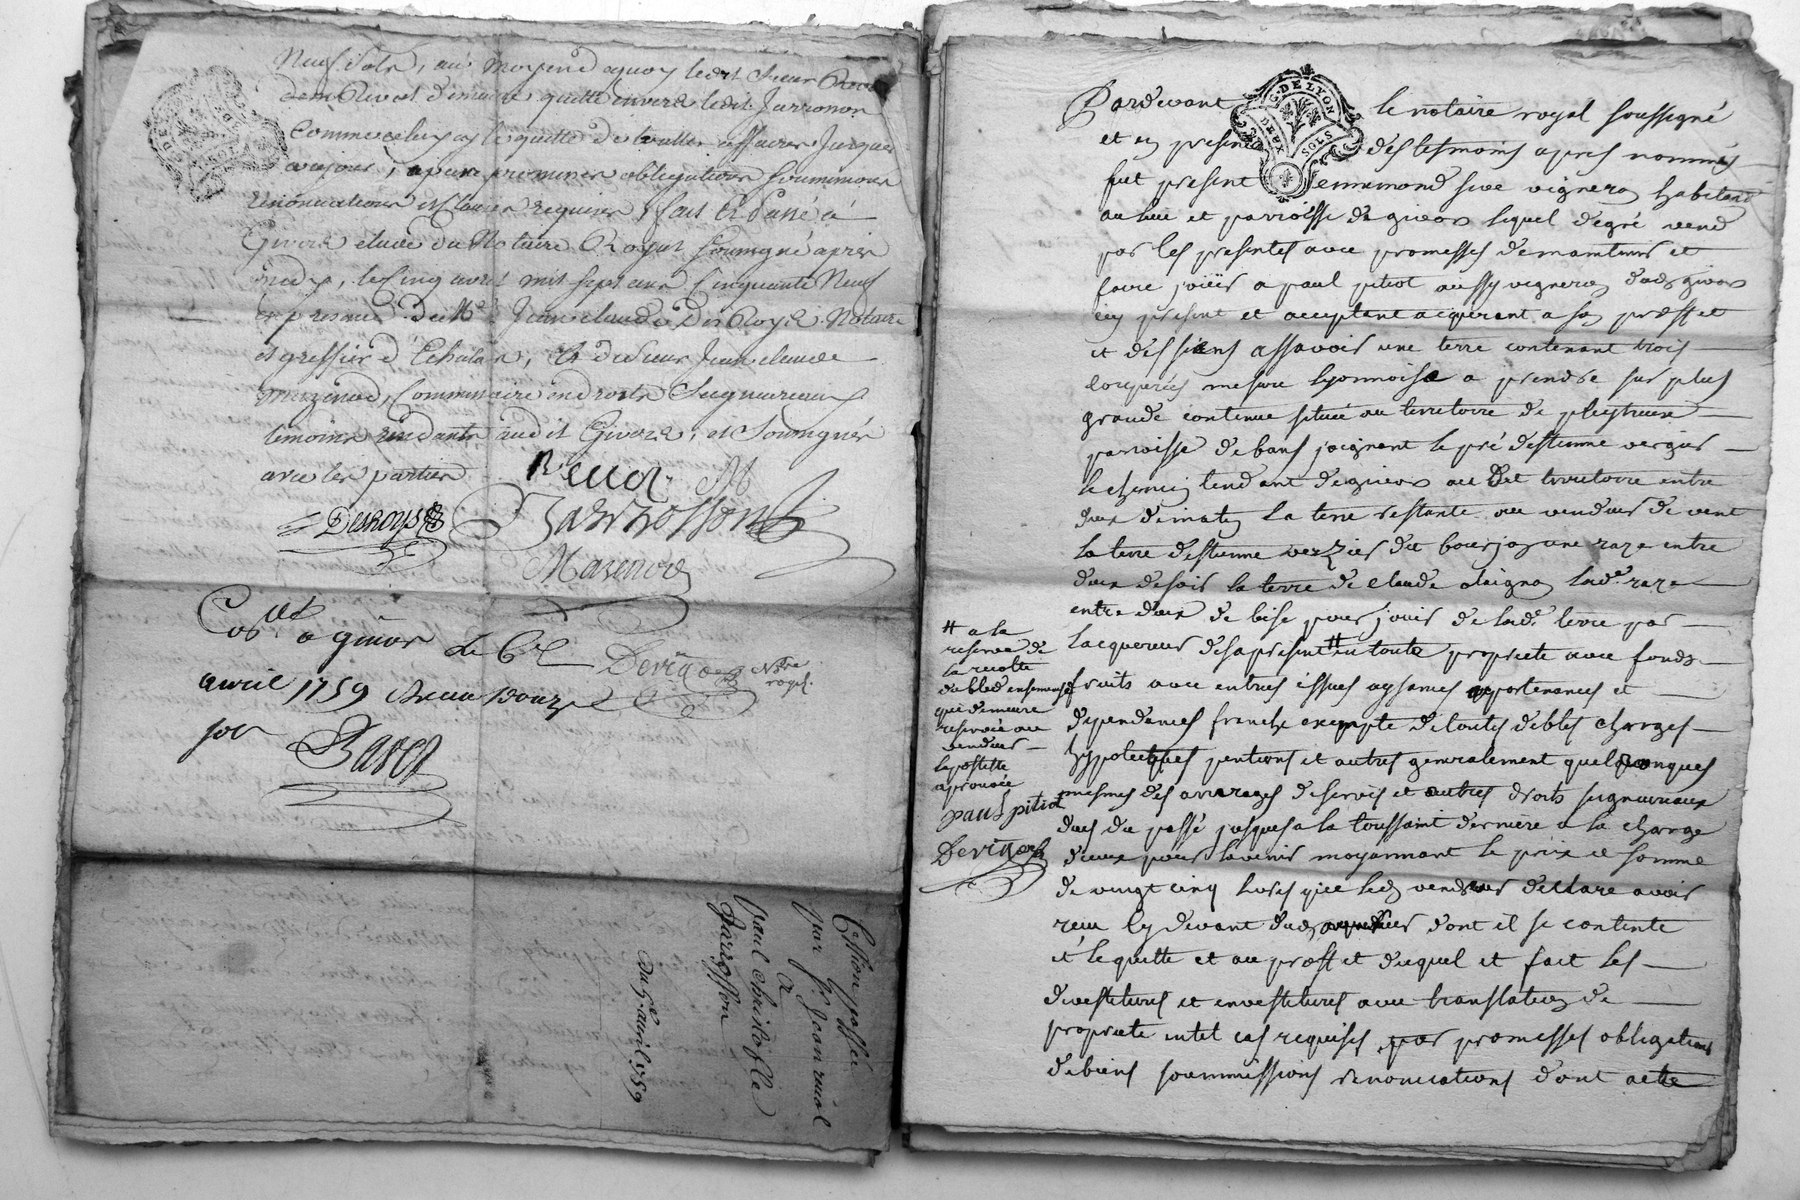 Neuf sols, au moyen de quoy ledit sieur
demeure quitte envers ledit Jarrosson
comme celuy cy le quitte de touttes affaires Jusques
aujour, apeine promesses obligations soummissions
renonciations et clauses requises, fait et passé à
Givors etude du Notaire Royal soussigné après
midy, le cinq avril mil sept cent cinquante Neuf
en presence de Me Jean claude Des Royes Notaire
et greffier d'Echalas, et de sieur Jean claude
mazenod, Commissaire en droits Seigneuriaux
temoins residants audit Givors, et soussignés
avec les parties
Desroys
Jarrossont
Mazenod
a givors Le 6e
avril 1759 Reçu douze
sols
Devigo Nre
royal.
Cession passée
par Sr Jean
A
Paul Christofle
Jarrosson
Du 5e avril 1759
G. DE LYON
DEUX SOLS
Pardevant le notaire royal soussigné
et en presence des tesmoins apres nommés
fut present vigneron habitant
au lieu et parroisse de givors lequel de gré vend
par les presentes avec promesses de maintenir et
faire jouir a paul pitiot aussy vigneron dud. givors
icy present et acceptant acquerant a son proffit
et des siens assavoir une terre contenant trois
couperées mesure lyonnoise a prendre sur plus
grande contenue située au territoire de
parroisse de bans joignant le pré destienne verzier
le chemin tendant de givors au Dit territoire entre
deux de matin la terre restante au vendeur de vent
la terre destienne verzier dit bourjoy une raze entre
deux de soir la terre de claude lade. raze
entre deux de bise pour jouir de lade. terre par
lacquereur des apresent # en toute propriete avec fonds
fruits avec entrées issues aysances appartenances et
dependances franche exempte de toutes debtes charges
hypoteques pentions et autres generalement quelconques
mesmes des arrerages de servis et autres droits seigneuriaux
dues du passé jusques a la toussaint derniere a la charge
diceux pour lavenir moyannant le prix et somme
de vingt cinq livres que led. vendeur declare avoir
receu cy devant dud. acquereur dont il se contente
et le quitte et au proffit duquel il fait les
devestitures et investitures avec translation de
propriete intel cas requises par promesses obligations
de biens soummissions renonciations dont acte
# a la
reserve de
la recolte
du bled ensemensé
qui demeure
reservée au
vendeur
lapostille
aprouvée
paul pitiot
Devigo